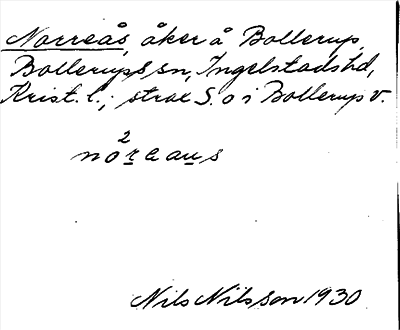 Norreås, åker å Bollerup,
Bollerups sn, Ingelstads hd,
Krist. l.; strax S. o i Bollerup v.
2
nọr̲ea̲u̲s
Nils Nilsson 1930